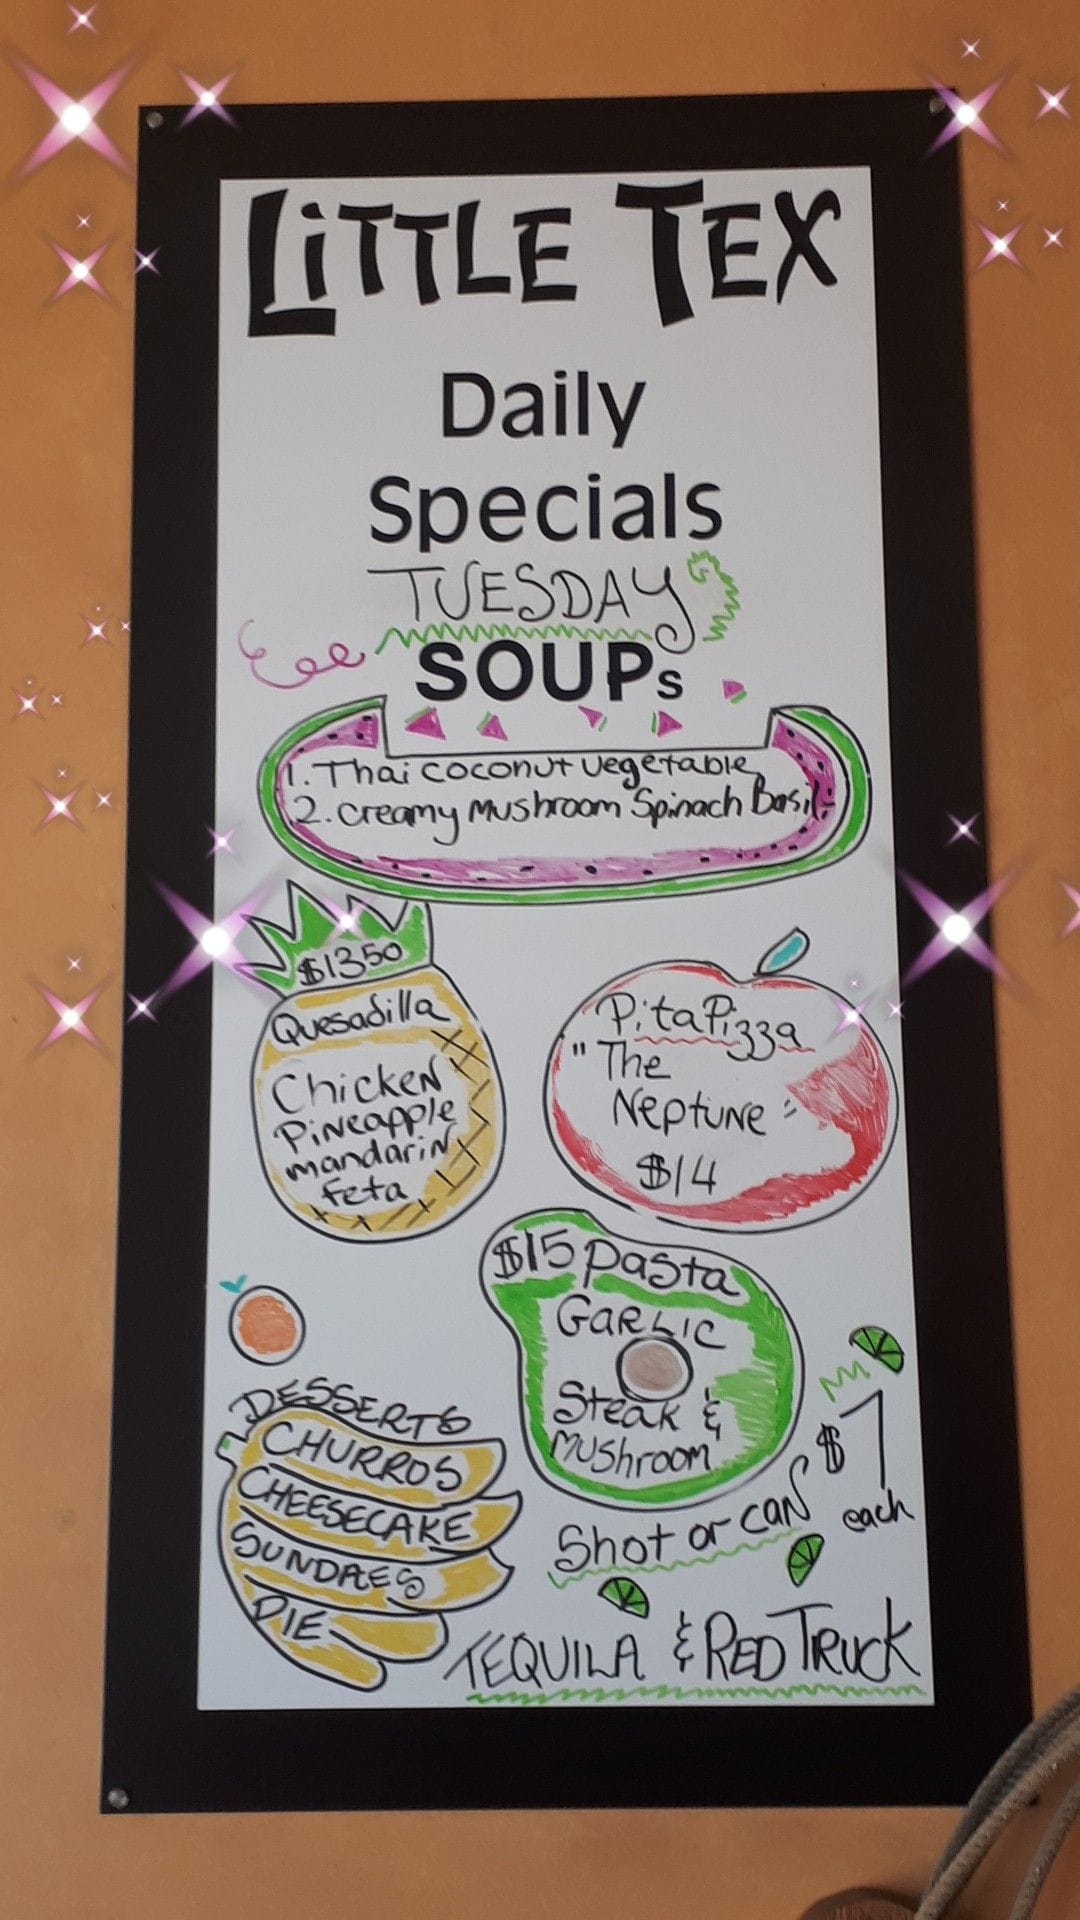 LiTTLE TEX
Daily
Specials
TUESDAY
SOUPs
1. Thai coconut vegetable
2. creamy Mushroom Spinach Basil
$1350
Quesadilla
Chicken
Pineapple
mandarin
feta
Pita Pizza
"The
Neptune"
$14
$15 Pasta
GARLIC
Steak &
Mushroom
DESSERTS
CHURROS
CHEESECAKE
SUNDAES
PIE
$7
each
Shot or can
TEQUILA & RED TRUCK